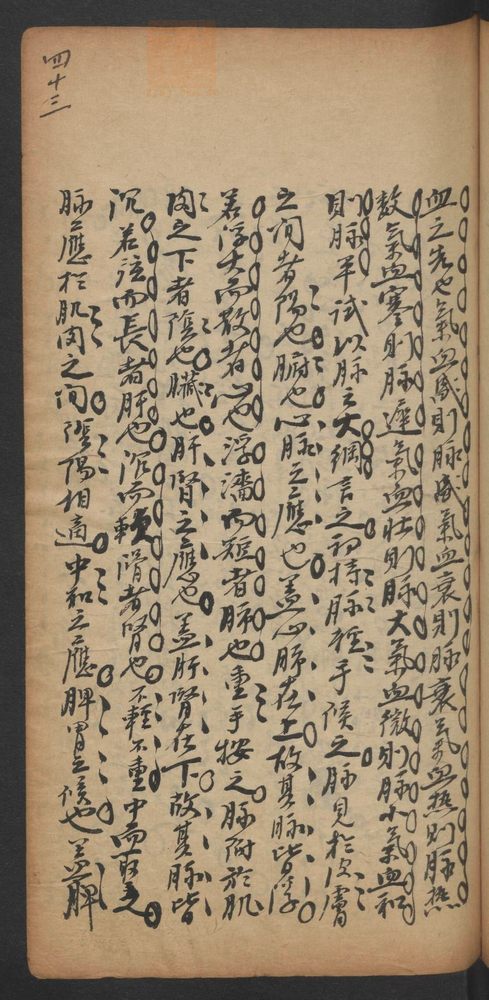 血之先也氣血盛則脉盛氣血衰則脉衰氣血熱則脉熱
數氣血寒則脉遲氣血壯則脉大氣血微則脉小氣血和
則脉平試以脉之大綱言之初持脉輕手候之脉見於皮膚
之间者陽也腑也心肺之應也盖心肺在上故其脉皆浮
若浮大而散者心也浮濇而短者肺也重手按之脉附於肌
肉之下者陰也臟也肝腎之應也盖肝腎在下故其脉皆
沉若弦而長者肝也沉而軟滑者腎也不輕不重中而取之
脉應於肌肉之间陰陽相適中和之應脾胃之候也盖脾
四十三